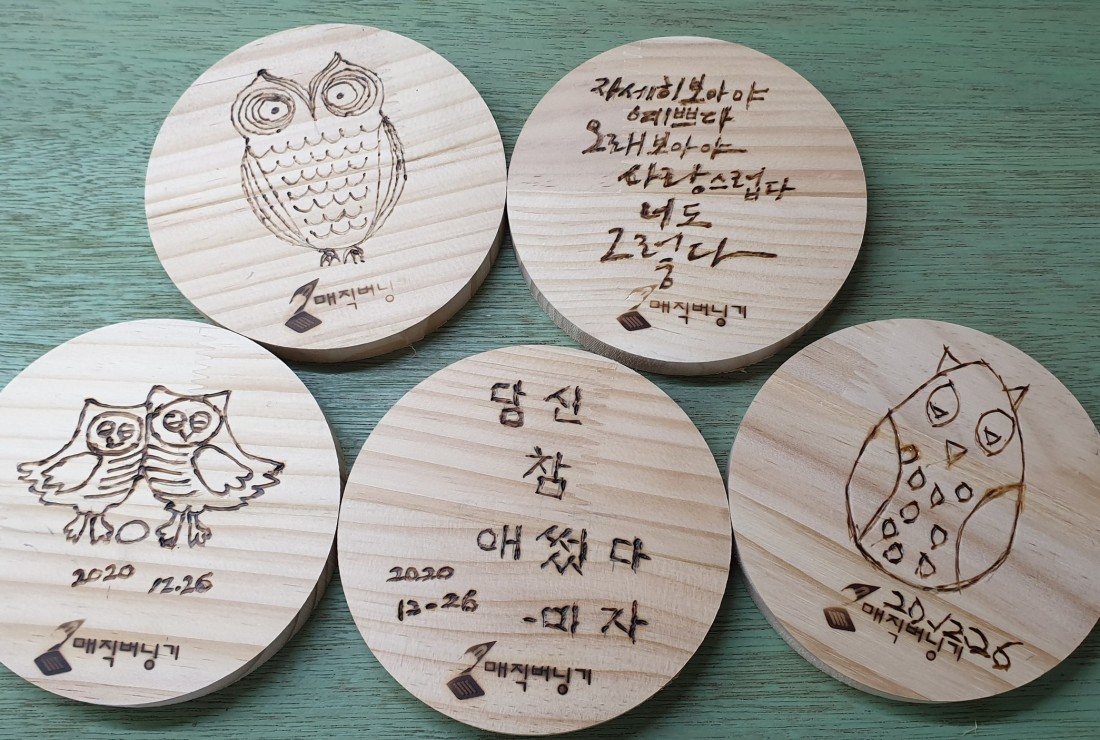 매직버닝
자세히보아야
예쁘다
오래보아야
사랑스럽다
너도
그렇다
매직버닝기
2020 12.26
매직버닝기
당신
참
애썼다
2020
12-26
매직버닝기
20-1226
매직버닝기